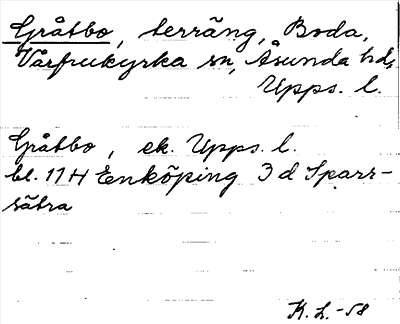 Gråtbo, terräng, Boda,
Vårfrukyrka sn, Åsunda hd,
Upps. l.
Gråtbo, ek. Upps. l.
bl. 11H Enköping 3 d Sparr-
sätra
K. L. -58